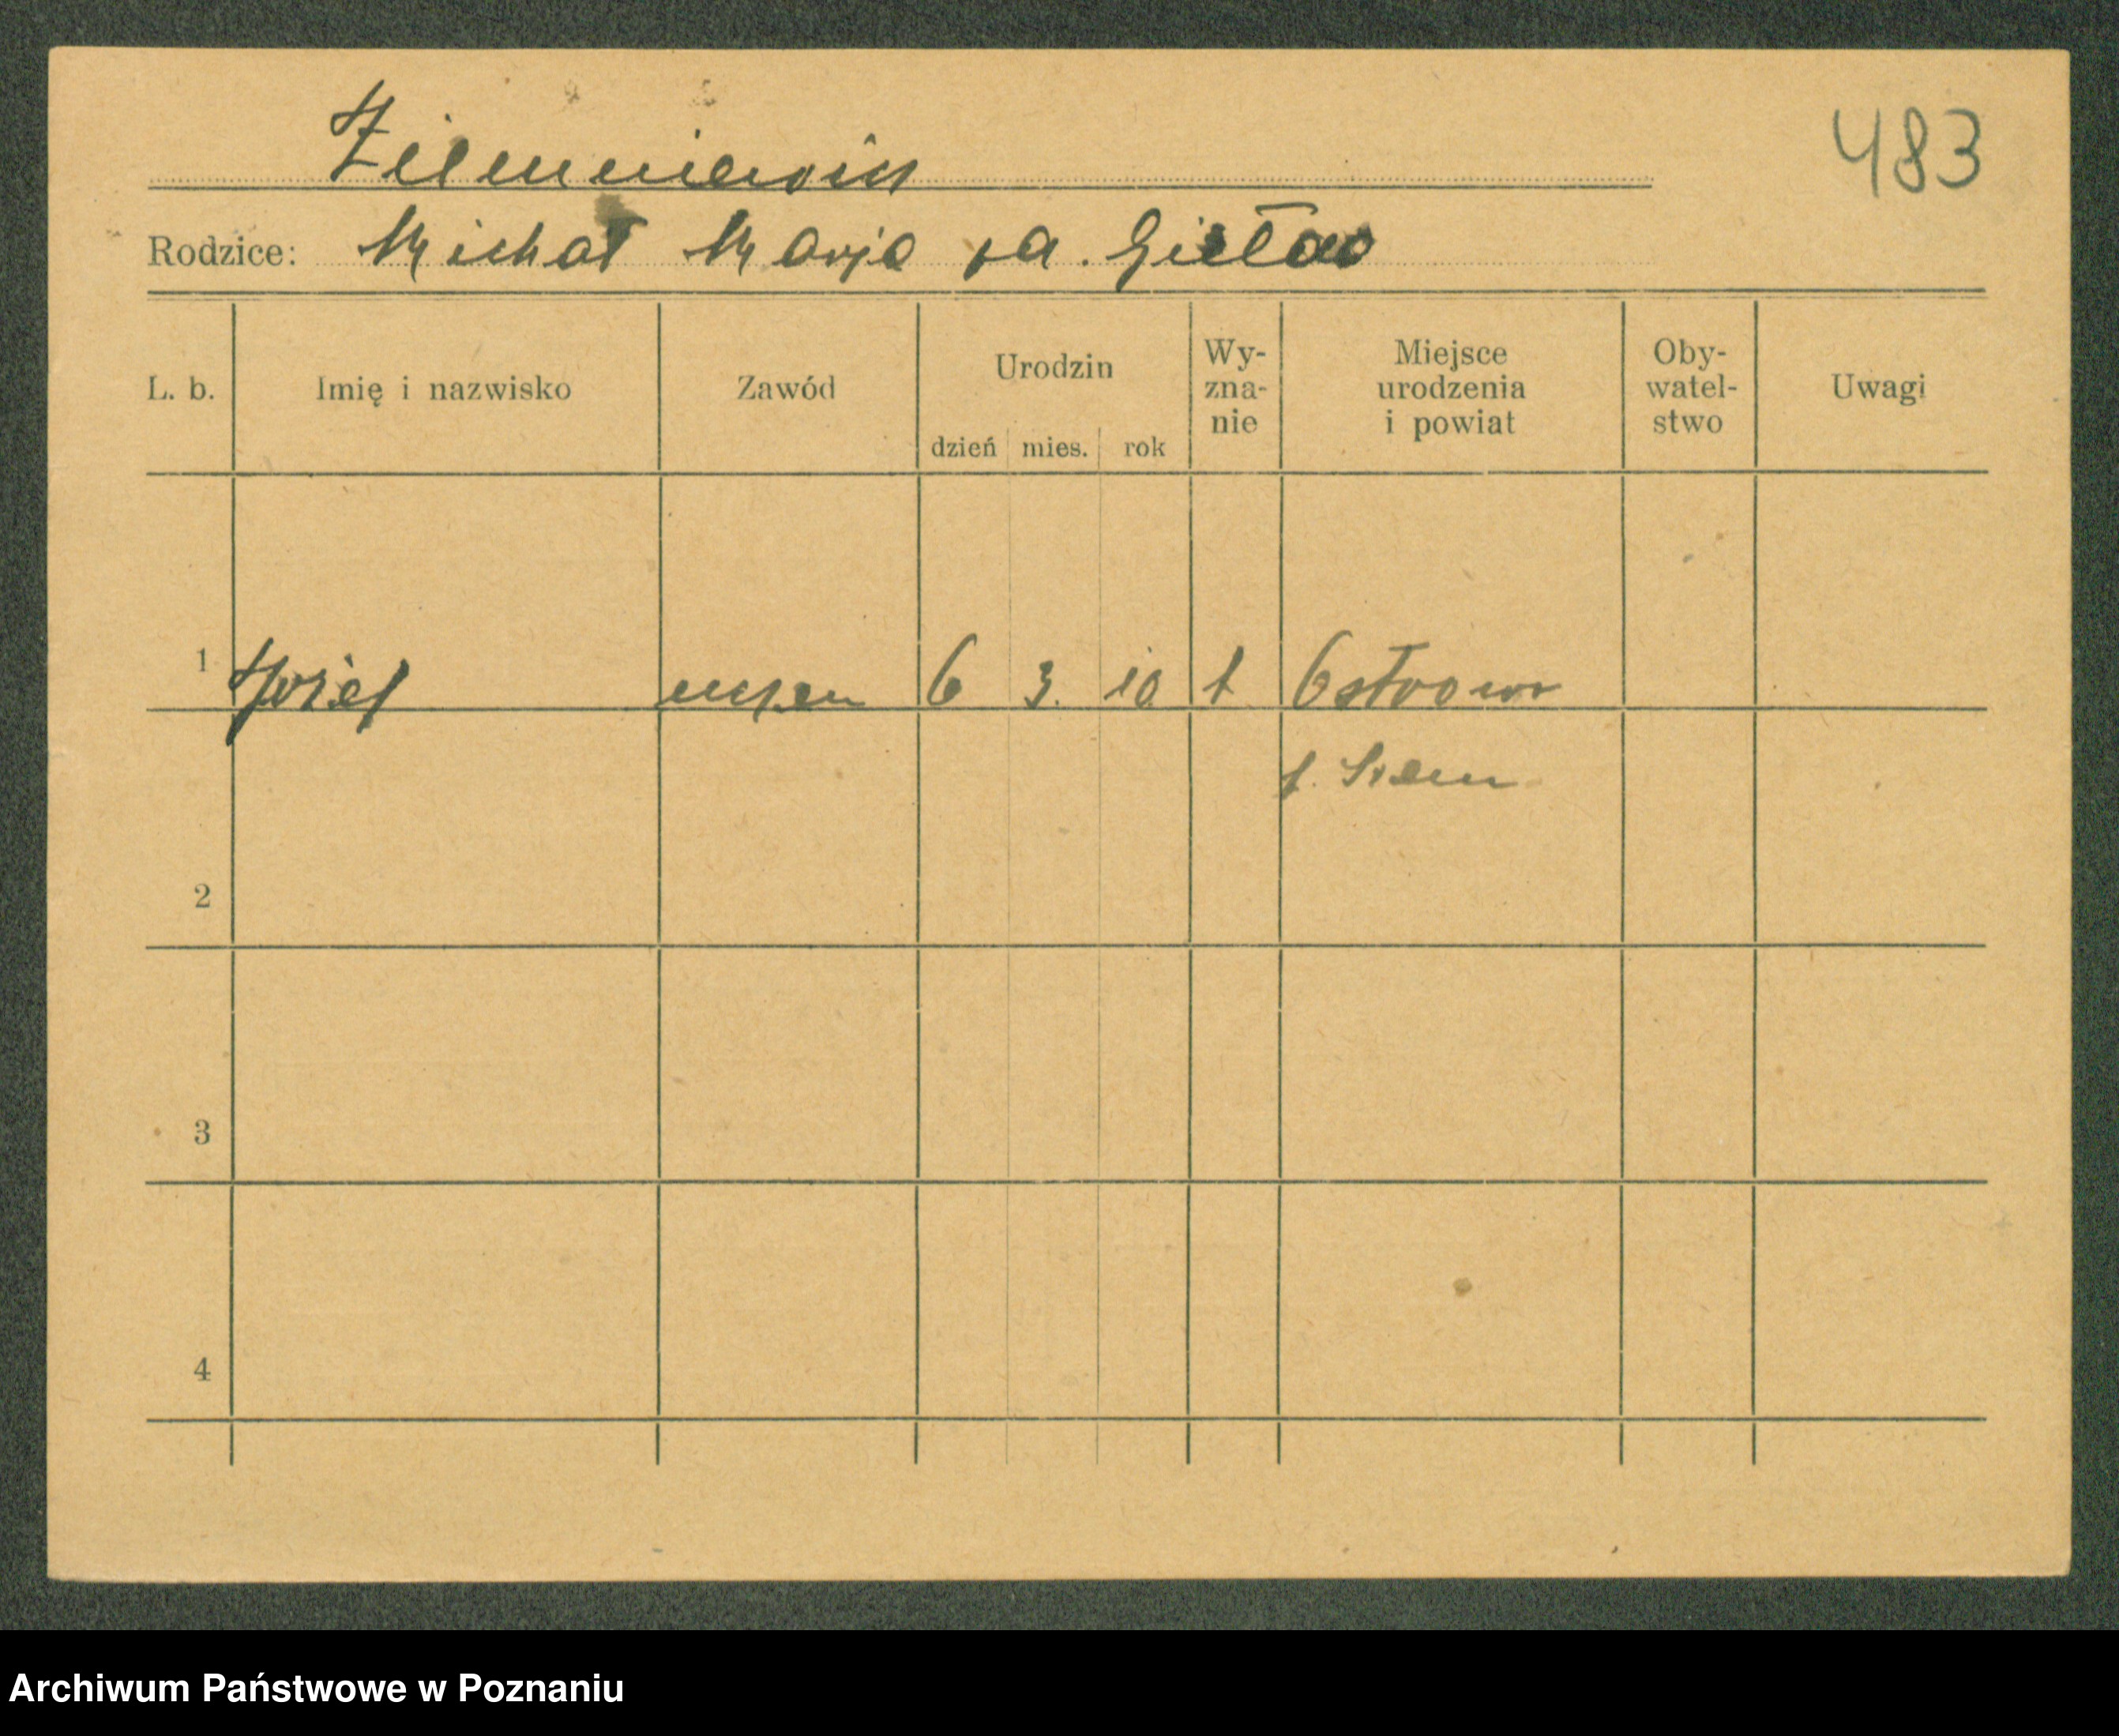 483
Ziemniewicz
Rodzice: Michał Marja
L. b. Imię i nazwisko Zawód Urodzin dzień mies. rok Wy-zna-nie Miejsce urodzenia i powiat Oby-watel-stwo Uwagi
1 Józef uczeń 6 3. 10. Ostrowo
p. Śrem
2
3
4
Archiwum Państwowe w Poznaniu